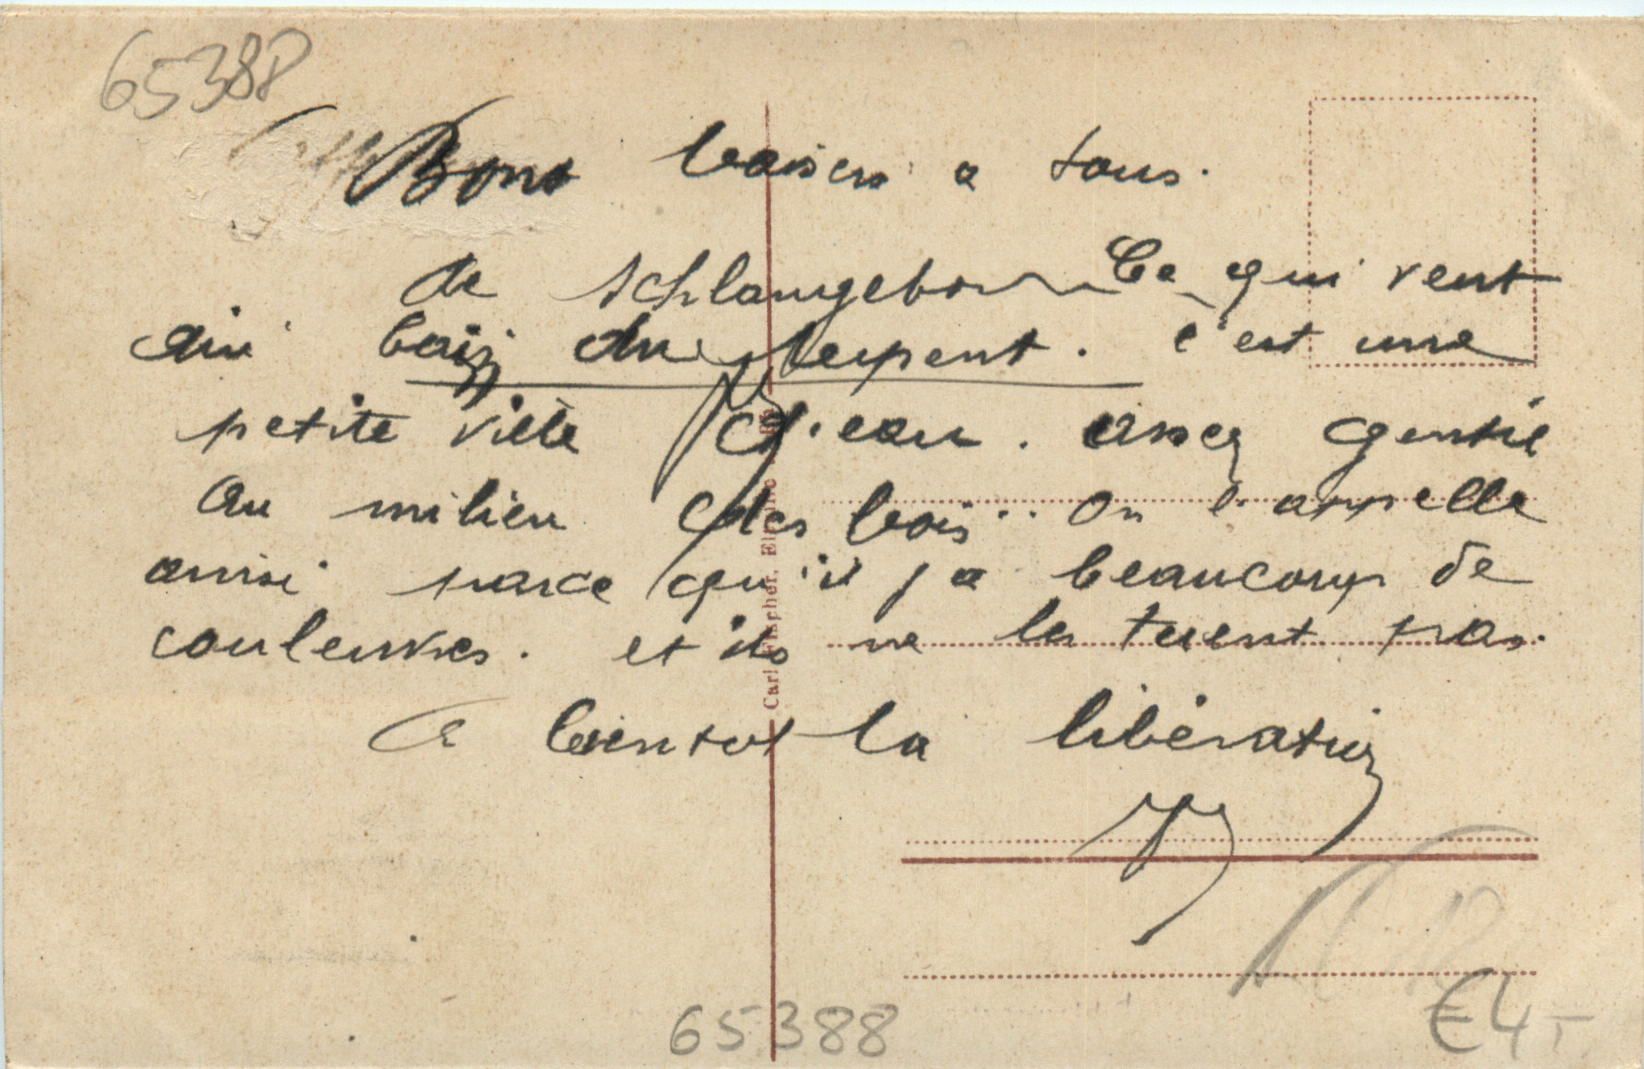 65388
Bons baisers a tous.
de Schlangebad Ce qui veut
dire bain du serpent. c'est une
petite ville d'eau. assez gentil
au milieu des bois. On l'appelle
ainsi parce qu'il y a beaucoup de
couleuvres. et ils ne les tuent pas.
A bientot la libération
Carl Fischer,
65388
€4-